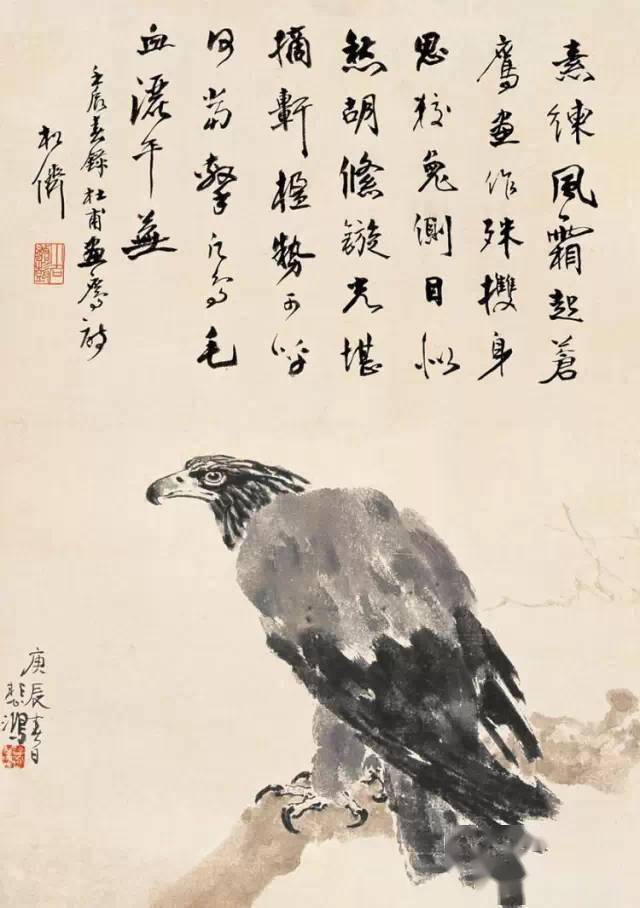 素練風霜起蒼
鷹畫作殊㩳身
思狡兔側目似
愁胡絛鏇光堪
摘軒楹勢可呼
何當擊凡鳥毛
血灑平蕪
壬辰春錄杜甫畫鷹詩
松儕
庚辰春日
悲鴻